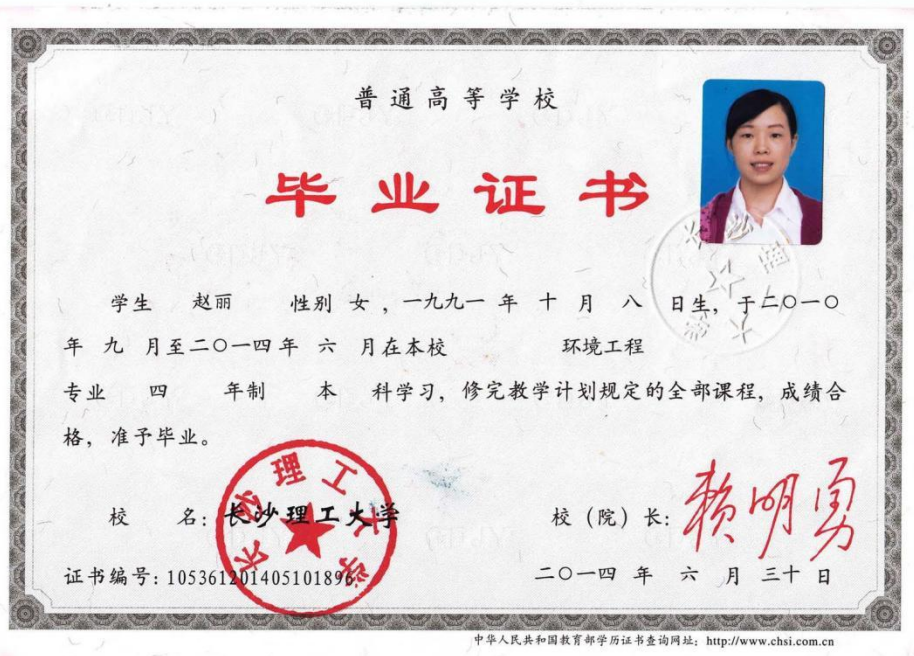 普通高等学校
毕业证书
学生 赵丽 性别 女，一九九一 年 十 月 八 日生，于二〇一〇
年 九 月至二〇一四年 六 月在本校 环境工程
专业 四 年制 本 科学习，修完教学计划规定的全部课程，成绩合
格，准予毕业。
长沙理工大学
校 名：长沙理工大学 校（院）长：赖明勇
证书编号：105361201405101896 二〇一四 年 六 月 三十 日
中华人民共和国教育部学历证书查询网址：http://www.chsi.com.cn